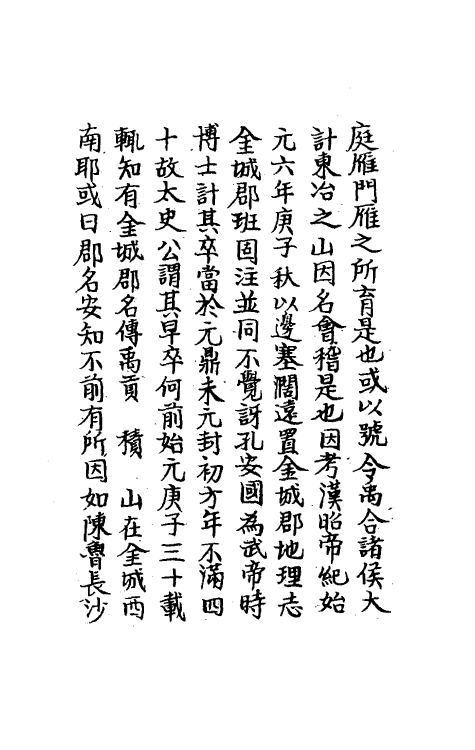 庭雁門雁之所育是也或以號令禹合諸侯大
計東冶之山因名會稽是也因考漢昭帝紀始
元六年庚子秋以邊塞濶遠置金城郡地理志
金城郡班固注並同不覺訝孔安國為武帝時
博士計其卒當於元鼎末元封初方年不滿四
十故太史公謂其早卒何前始元庚子三十載
輒知有金城郡名傳禹貢 積 山在金城西
南耶或曰郡名安知不前有所因如陳魯長沙